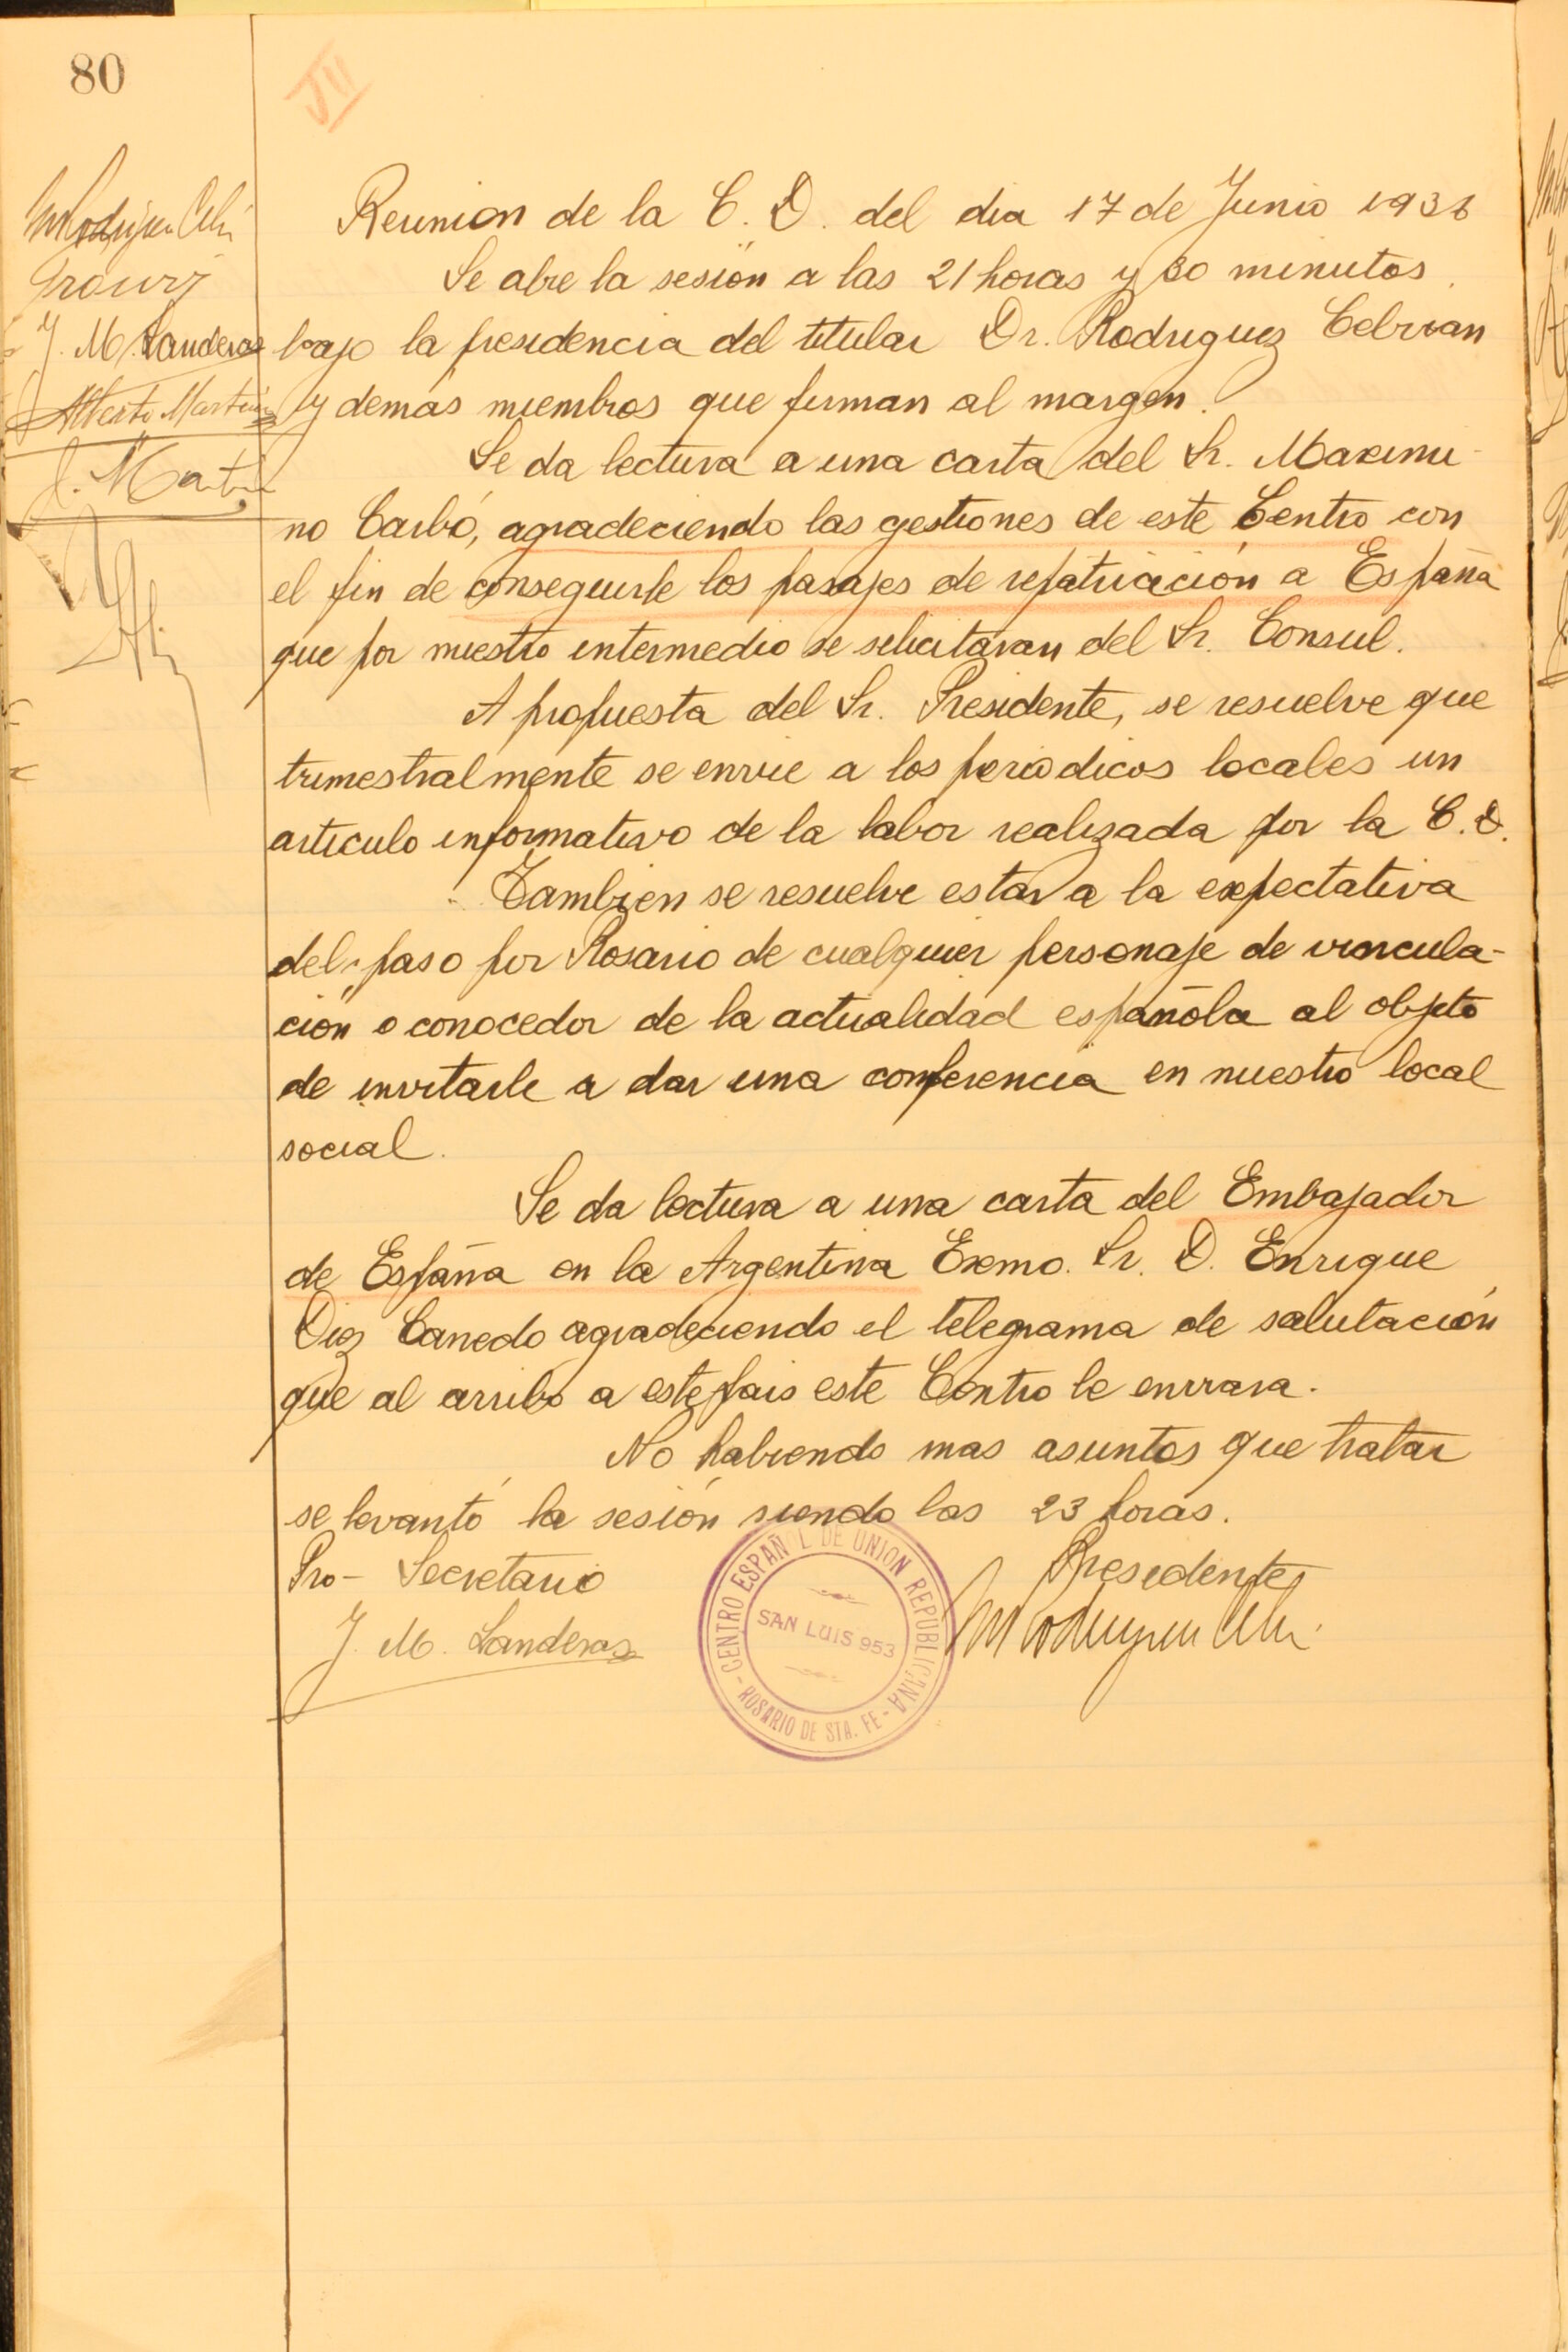 80
VII
Reunion de la C. D. del dia 17 de Junio 1936
Se abre la sesión a las 21 horas y 30 minutos
bajo la presidencia del titular Dr. Rodriguez Cebrian
y demás miembros que firman al margen.
Se da lectura a una carta del Sr. Maximi-
no Carbó, agradeciendo las gestiones de este Centro con
el fin de conseguirle los pasajes de repatriación a España
que por nuestro intermedio se solicitaran del Sr. Consul.
A propuesta del Sr. Presidente, se resuelve que
trimestralmente se envie a los periodicos locales un
articulo informativo de la labor realizada por la C. D.
Tambien se resuelve estar a la expectativa
del paso por Rosario de cualquier personaje de vincula-
ción o conocedor de la actualidad española al objeto
de invitarle a dar una conferencia en nuestro local
social.
Se da lectura a una carta del Embajador
de España en la Argentina Exmo. Sr. D. Enrique
Diez Canedo agradeciendo el telegrama de salutación
que al arribo a este pais este Centro le enviara.
No habiendo mas asuntos que tratar
se levantó la sesión siendo las 23 horas.
Pro-Secretario
Presidente
J. M. Landeras
M Rodriguez Cebri
CENTRO ESPAÑOL DE UNION REPUBLICANA
SAN LUIS 953
- ROSARIO DE STA. FE -
M Rodriguez Cebri
J. M. Landeras
Alberto Martinez
J. Martin